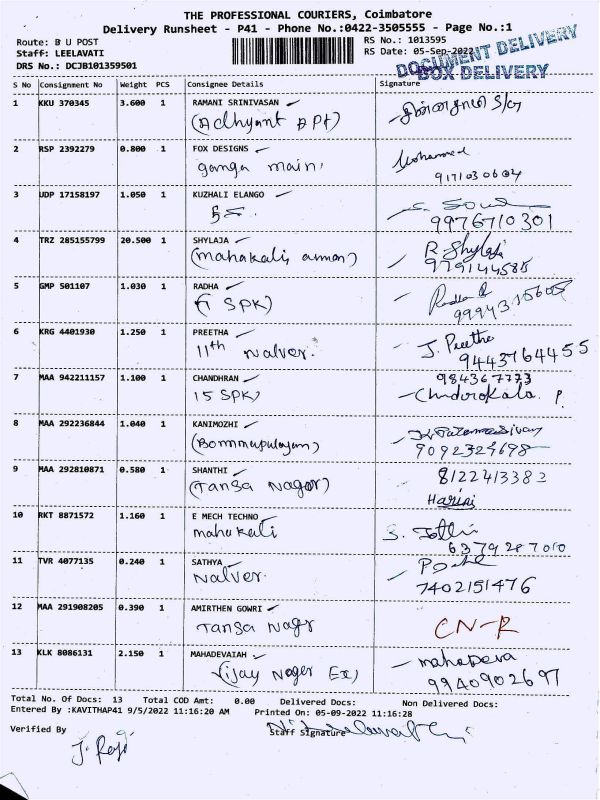 THE PROFESSIONAL COURIERS, Coimbatore
Delivery Runsheet - P41 - Phone No.:0422-3505555 - Page No.:1
Route: B U POST
RS No.: 1013595
Staff: LEELAVATI
RS Date: 05-Sep-2022
DRS No.: DCJB101359501
DOCUMENT DELIVERY
BOX DELIVERY
S No Consignment No Weight PCS Consignee Details Signature
1 KKU 370345 3.600 1 RAMANI SRINIVASAN
(Adhyant APt) S/o
2 RSP 2392279 0.800 1 FOX DESIGNS
ganga main, Mohammed
9171030604
3 UDP 17158197 1.050 1 KUZHALI ELANGO
9976710301
4 TRZ 285155799 20.500 1 SHYLAJA R. Shylaja
(mahakali amman) 979144585
5 GMP 501107 1.030 1 RADHA Radha R
SPK)
6 KRG 4401930 1.250 1 PREETHA J. Preetha
11th nalver. 9443764455
7 MAA 942211157 1.100 1 CHANDHRAN 984367773
15 SPK) Chndrokala. P.
8 MAA 292236844 1.040 1 KANIMOZHI
(Bommupalayam) 9092329698
9 MAA 292810871 0.580 1 SHANTHI 8122413382
(Tansa Nager) Harini
10 RKT 8871572 1.160 1 E MECH TECHNO
mahakali S. Jothi
6379287010
11 TVR 4077135 0.240 1 SATHYA
Nalver. 7402151476
12 MAA 291908205 0.390 1 AMIRTHEN GOWRI
Tansa Nagr CN-R
13 KLK 8086131 2.150 1 MAHADEVAIAH mahadeva
Vijay Nager Ex) 9940902697
Total No. Of Docs: 13 Total COD Amt: 0.00 Delivered Docs: Non Delivered Docs:
Entered By :KAVITHAP41 9/5/2022 11:16:20 AM Printed On: 05-09-2022 11:16:28
Verified By Staff Signature
J. Raji